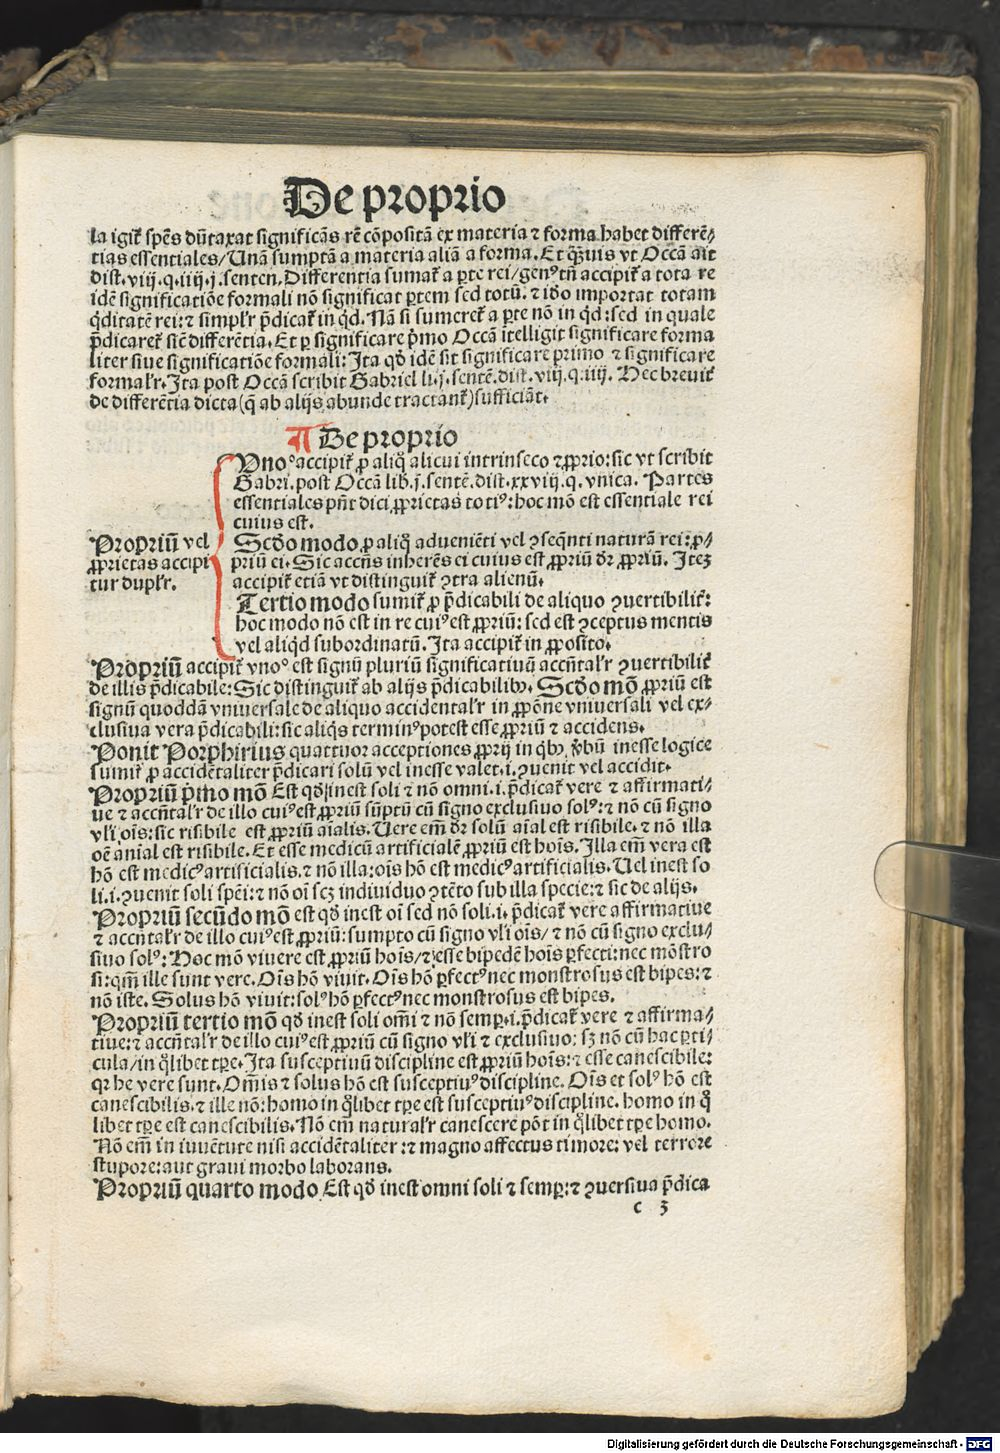 De proprio
la igit᷑ spēs dūtaxat significās rē cōpositā ex materia ⁊ forma habet differē/
tias essentiales/Unā sumptā a materia aliā a forma. Et q̄uis vt Occā ait
dist. viij. q. iij. j. senten. Differentia sumat᷑ a ꝑte rei/genꝰ tn̄ accipit᷑ a tota re
idē significatiōe formali nō significat ꝑtem sed totū. ⁊ iđo importat totam
q̇ditatē rei: ⁊ simpl'r p̄dicat᷑ in q̇d. Nā si sumeret᷑ a ꝑte nō in q̇d: sed in quale
p̄dicaret᷑ sic̄ differētia. Et ꝑ significare p̄mo Occā itelligit significare forma
liter siue significatiōe formali: Ita qđ idē sit significare primo ⁊ significare
formal'r. Ita post Occā scribit Gabriel li. j. sentē. dist. viij. q. iiij. Hec breuit᷑
de differētia dicta (q̄ ab alijs abunde tractant᷑) sufficiāt.
¶ De proprio
Unoꝰ accipit᷑ ꝓ aliq̊ alicui intrinseco ⁊ ꝓprio: sic vt scribit
Gabri. post Occā lib. j. sentē. dist. xxviij. q. vnica. Partes
essentiales pn̄t dici ꝓprietas totiꝰ: hoc mō est essentiale rei
cuius est.
Propriū vel
ꝓprietas accipi
tur dupl'r.
Scđo modo ꝓ aliq̊ aduenieti vel ꝯseq̄nti naturā rei: ꝓ-
priū ei. Sic accn̄s inherēs ei cuius est ꝓpriū dr̄ ꝓpriū. Itēꝫ
accipit᷑ etiā vt distinguit᷑ ꝯtra alienū.
Tertio modo sumit᷑ ꝓ p̄dicabili de aliquo ꝯuertibilit᷑:
hoc modo nō est in re cuiꝰ est ꝓpriū: sed est ꝯceptus mentis
vel aliq̇d subordinatū. Ita accipit᷑ in ꝓposito.
Propriū accipit᷑ vnoꝰ est signū pluriū significatiuū accn̄tal'r ꝯuertibilit᷑
de illis p̄dicabile: Sic distinguit᷑ ab alijs p̄dicabilibꝫ. Scđo mō ꝓpriū est
signū quoddā vniuersale de aliquo accidental'r in ꝓpōne vniuersali vel ex-
clusiua vera p̄dicabili: sic aliq̇s terminꝰ potest esse ꝓpriū ⁊ accidens.
Ponit Porphirius quattuor acceptiones ꝓprij in qbꝫ v̄bū inesse logice
sumit᷑ ꝓ accidētaliter p̄dicari solū vel inesse valet. i. ꝯuenit vel accidit.
Propriū p̄mo mō Est qđ inest soli ⁊ nō omni. i. p̄dicat᷑ vere ⁊ affirmati/
ue ⁊ accn̄tal'r de illo cuiꝰ est ꝓpriū sūptū cū signo exclusiuo solꝰ: ⁊ nō cū signo
vl'i oīs: sic risibile est ꝓpriū aīalis. Uere em̄ dr̄ solū aīal est risibile. ⁊ nō illa
oē animal est risibile. Et esse medicū artificialē ꝓpriū est hoīs. Illa em̄ vera est
hō est medicꝰ artificialis. ⁊ nō illa: oīs hō est medicꝰ artificialis. Uel inest so
li. i. ꝯuenit soli spēi: ⁊ nō oī scꝫ indiuiduo ꝯtēto sub illa specie: ⁊ sic de alijs.
Propriū secūdo mō est qđ inest oī sed nō soli. i. p̄dicat᷑ vere affirmatiue
⁊ accn̄tal'r de illo cuiꝰ est ꝓpriū: sumpto cū signo vl'i oīs/ ⁊ nō cū signo exclu/
siuo solꝰ: Hoc mō viuere est ꝓpriū hoīs/⁊ esse bipedē hoīs ꝑfecti: nec mōstro
si: qm̄ ille sunt vere. Oīs hō viuit. Oīs hō ꝑfectꝰ nec monstrosus est bipes: ⁊
nō iste. Solus hō viuit: solꝰ hō ꝑfectꝰ nec monstrosus est bipes.
Propriū tertio mō qđ inest soli om̄i ⁊ nō semꝑ. i. p̄dicat᷑ vere ⁊ affirma/
tiue: ⁊ accn̄tal'r de illo cuiꝰ est ꝓpriū cū signo vl'i ⁊ exclusiuo: sꝫ nō cū hac ꝑti-
cula/in q̄libet tꝑe. Ita susceptiuū discipline est ꝓpriū hoīs: ⁊ esse canescibile:
qꝛ he vere sunt. Om̄is ⁊ solus hō est susceptiuꝰ discipline. Oīs et solꝰ hō est
canescibilis. ⁊ ille nō: homo in q̄libet tꝑe est susceptiuꝰ discipline. homo in q̄
libet tꝑe est canescibilis. Nō em̄ natural'r canescere pōt in q̄libet tꝑe homo.
Nō em̄ in iuuētute nisi accidētaliter: ⁊ magno affectus timore: vel terrore
stupore: aut graui morbo laborans.
Propriū quarto modo Est qđ inest omni soli ⁊ semꝑ: ⁊ ꝯuersiua p̄dica
c 3
Digitalisierung gefördert durch die Deutsche Forschungsgemeinschaft - DFG